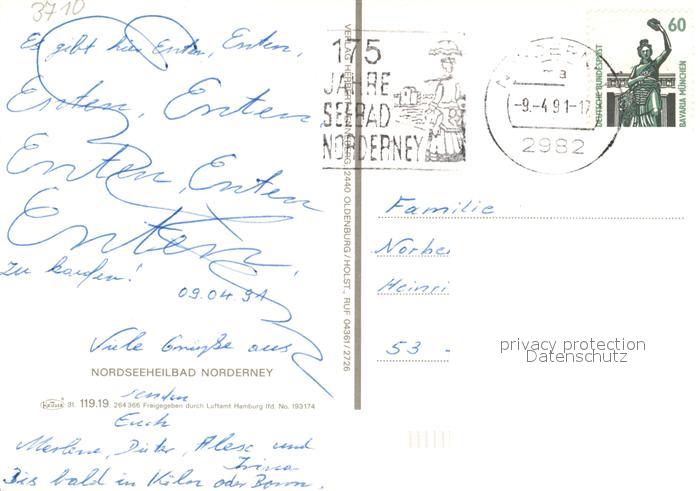 3710
Es gibt hier Enten, Enten,
Enten, Enten
Enten, Enten
Enten,
zu kaufen!
09.04.91
Viele Grüße aus
NORDSEEHEILBAD NORDERNEY
senden
31. 119.19 264366 Freigegeben durch Luftamt Hamburg lfd. No. 193174
Euch
Marlene, Dieter, Alex und
Irina
Bis bald in Köln oder Bonn.
2440 OLDENBURG/HOLST., RUF 04361/2726
175
JAHRE
SEEBAD
NORDERNEY
-9.-4.91-17
2982
60
DEUTSCHE BUNDESPOST
BAVARIA MÜNCHEN
Familie
Norbe
Heinri
53 -
privacy protection
Datenschutz